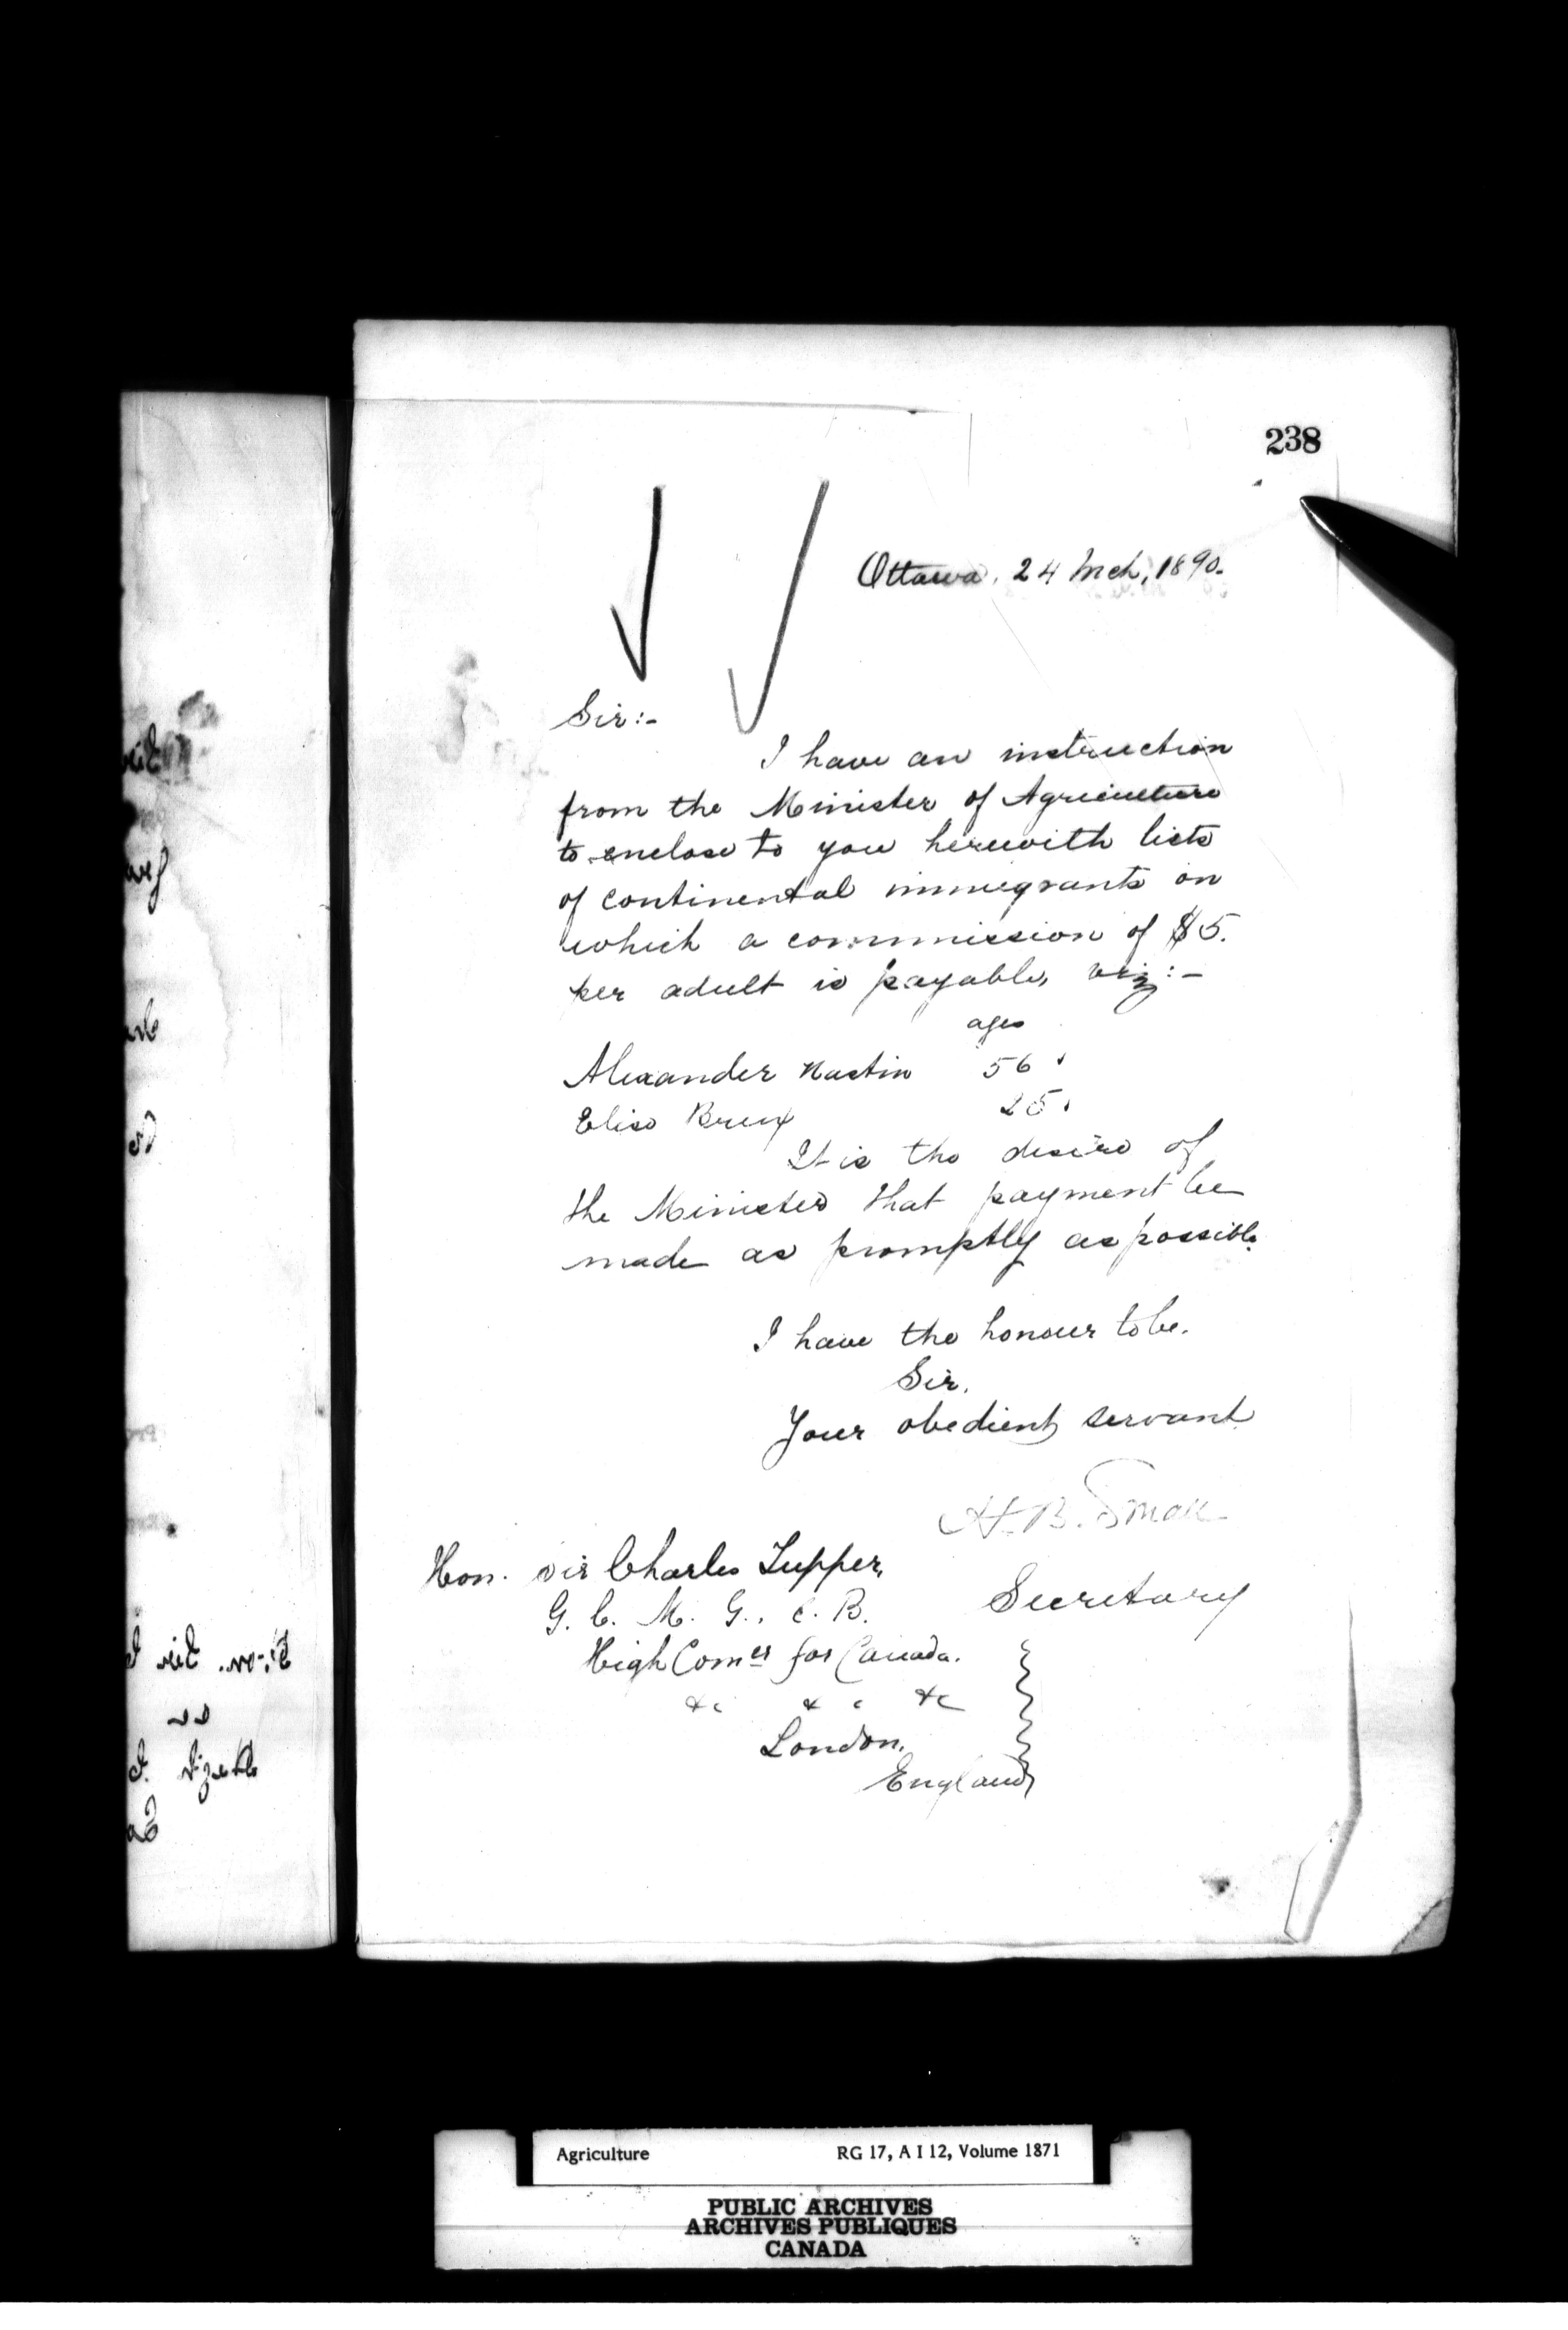 238
Ottawa, 24 Mch, 1890.
Sir:-
I have an instruction
from the Minister of Agriculture
to enclose to you herewith lists
of continental immigrants on
which a commission of $5.
per adult is payable, viz:-
ages
Alexander Nastin 56
Elise 25
It is the desire of
the Minister that payment be
made as promptly as possible.
I have the honour to be.
Sir.
Your obedient servant
H. B. Small
Secretary
Hon. Sir Charles Tupper,
G. C. M. G., C. B.
High Comer for Canada.
&c &c &c
London.
England
Agriculture RG 17, A I 12, Volume 1871
PUBLIC ARCHIVES
ARCHIVES PUBLIQUES
CANADA